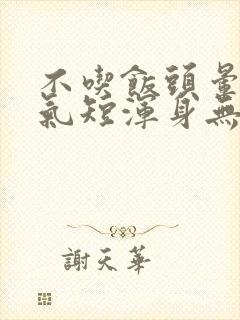 不喫飯頭暈
氣短渾身無
謝天華